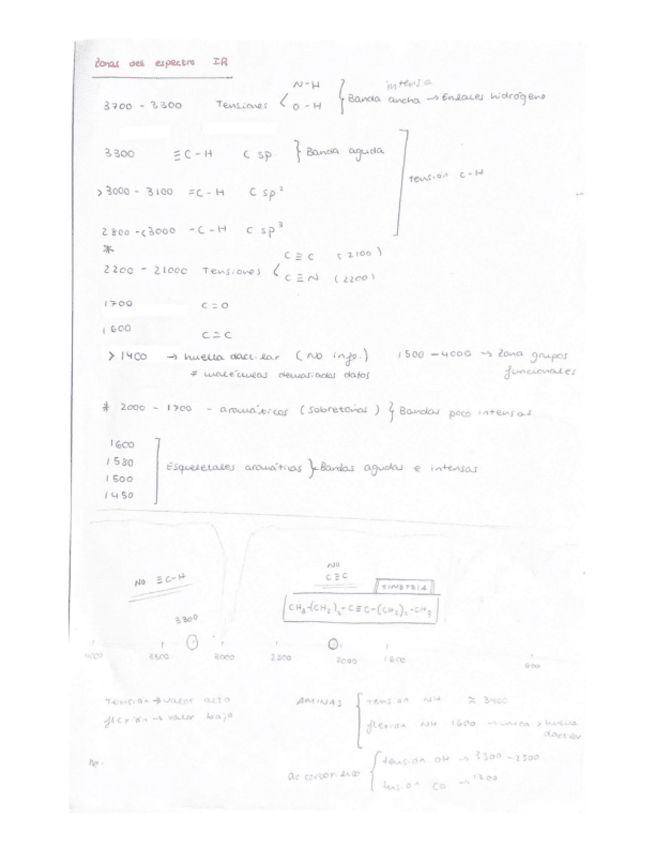 Zonas del espectro IR
N-H
intensa
3700 - 3300 Tensiones O-H Banda ancha → Enlaces hidrógeno
3300 ≡C-H C sp Banda aguda
>3000 - 3100 =C-H C sp²
Tensión C-H
2800 - <3000 -C-H C sp³
*
C≡C (2100)
2200 - 21000 Tensiones
C≡N (2200)
1700 C=O
1600 C=C
> 1400 → huella dactilar (No info.) 1500 - 4000 → Zona grupos
* moléculas demasiados datos funcionales
* 2000 - 1700 - aromáticos (sobretonos) Bandas poco intensas
1600
1580 Esqueletales aromáticas Bandas agudas e intensas
1500
1450
NO ≡C-H
NO
C≡C
SIMETRIA
CH₃-(CH₂)₂-C≡C-(CH₂)₂-CH₃
3300
4000 3500 3000 2500 2000 1800 600
Tensión → valor alto
flexión → valor bajo
AMINAS tensión NH ≈ 3400
flexión NH 1600 huella
dactilar
ac carboxílico tensión OH → 3300 - 2500
tensión CO → 1700